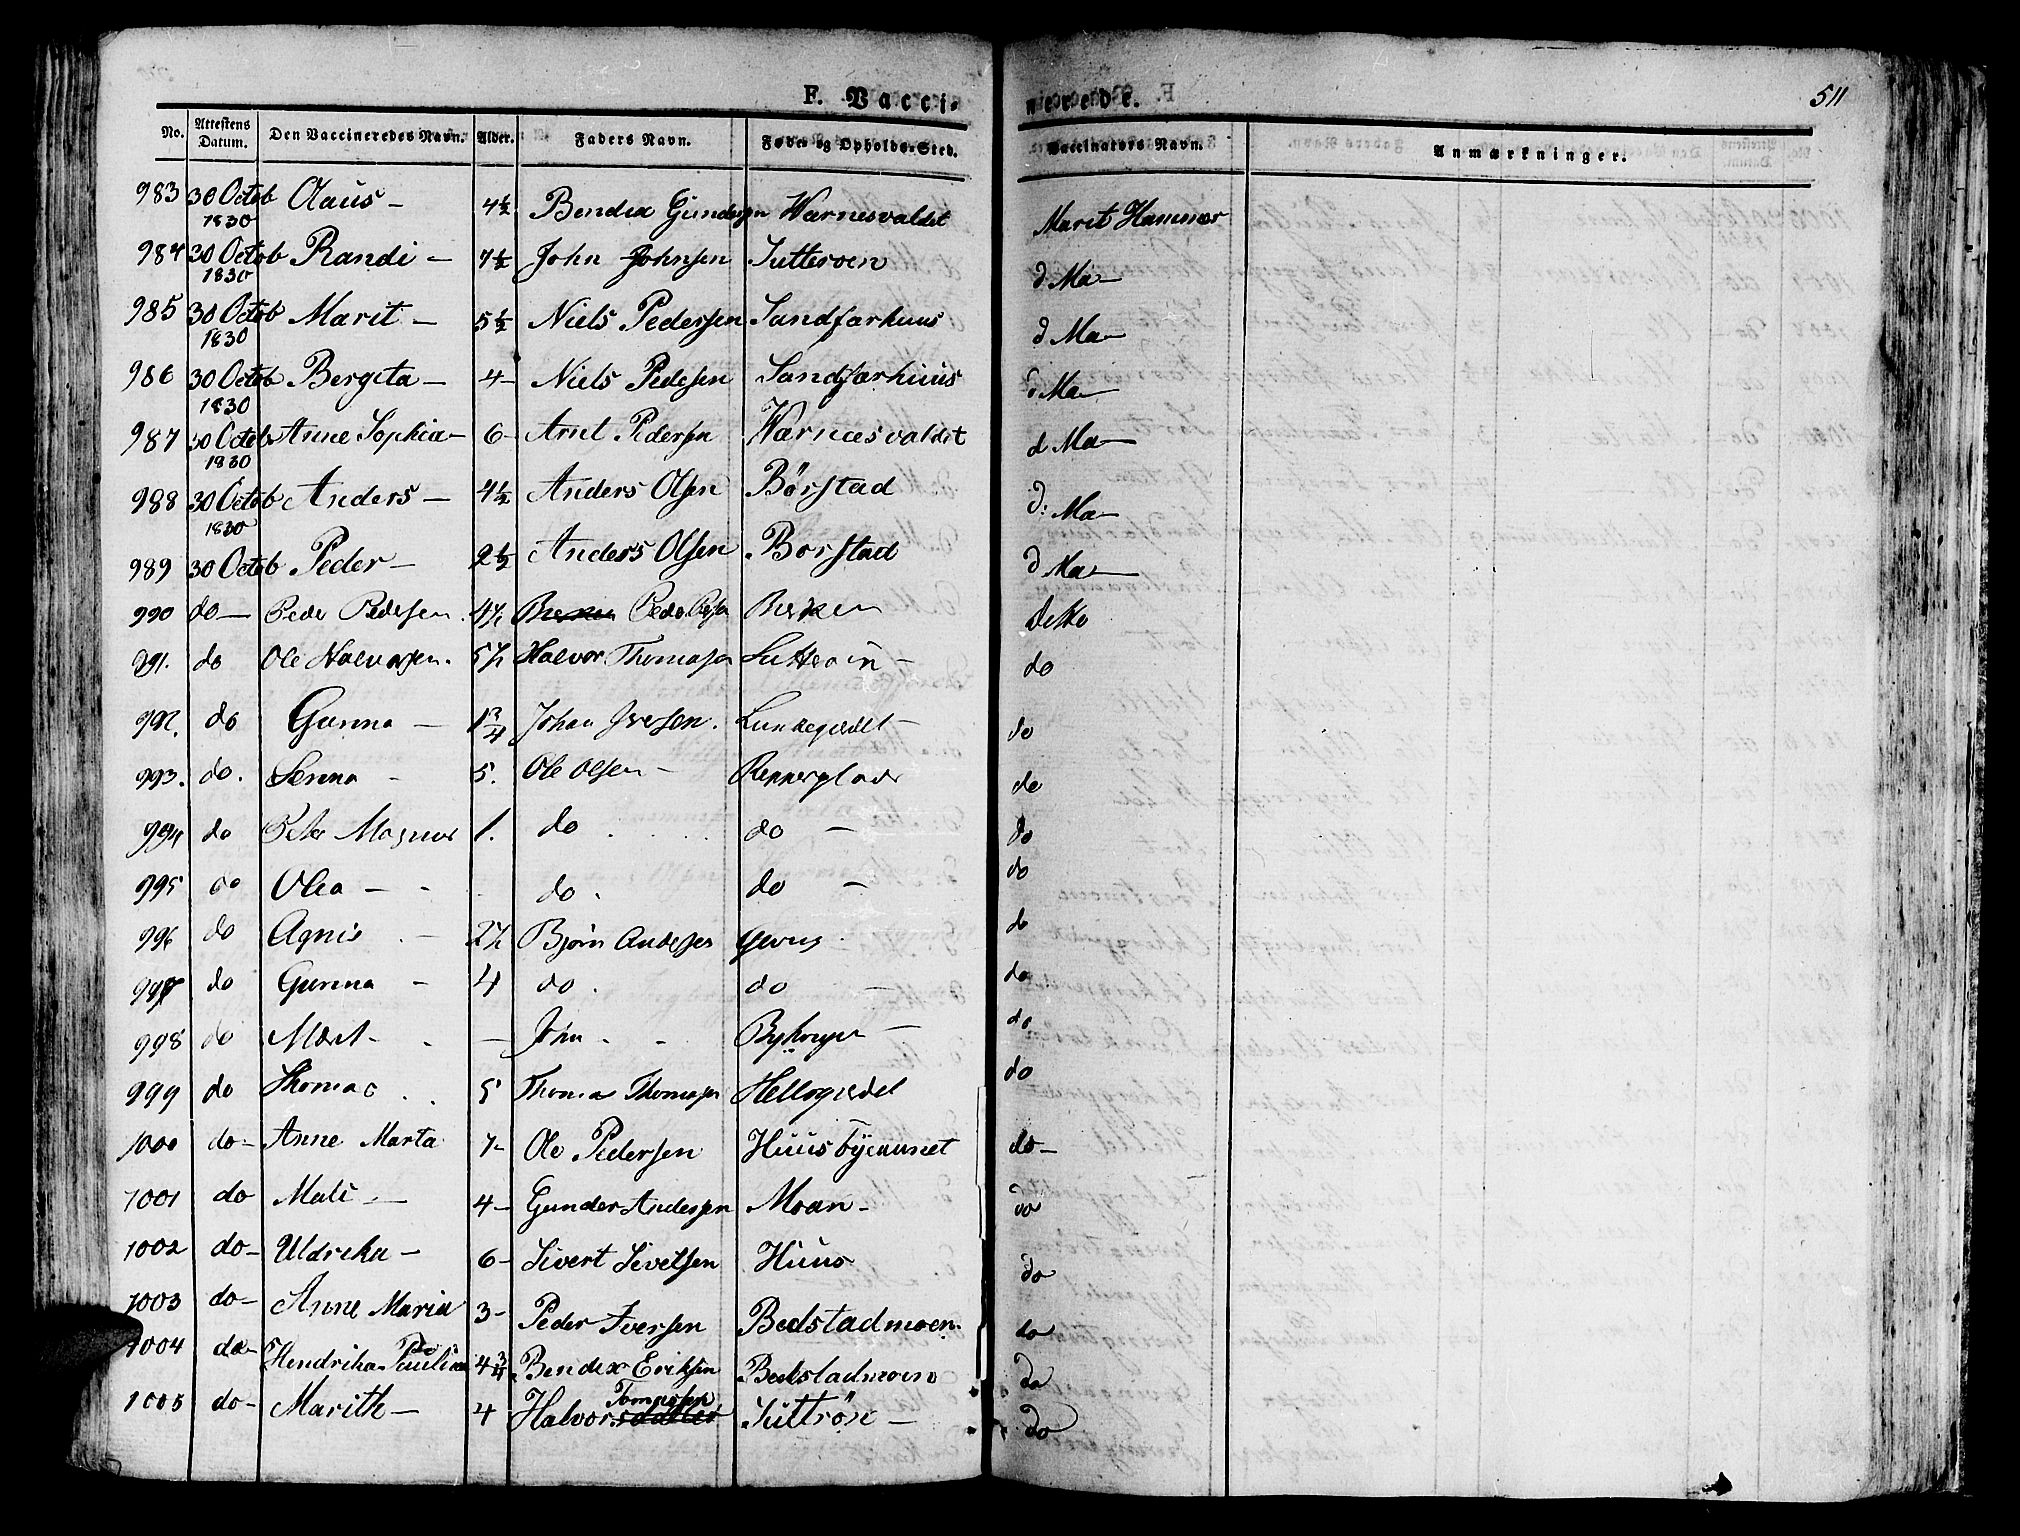 F. Vacci- nierede. 511
No. Attestens Datum. Den Vaccineredes Navn. Alder. Faders Navn. Føde- og Opholds-Sted. Vaccinateurs Navn. Anmærkninger.
983 30 Octob 1830 Olaus - 4½ Bendix Gundersen Wærnesvaldet Marit Hamnær
984 30 Octob 1830 Randi - 7½ John Johnsen Sutteroen d Ma-
985 30 Octob 1830 Marit - 5½ Niels Pedersen Sandfærhuus d Ma-
986 30 Octob 1830 Bergita - 4- Niels Pedersen Sandfærhuus d Ma-
987 30 Octob 1830 Anne Sophia - 6- Arnt Pedersen Wærnæsvaldet d Ma-
988 30 Octob 1830 Anders - 4½ Anders Olsen Börstad d: Ma-
989 30 Octob Peder - 2½ Anders Olsen Borstad d Ma-
990 do- Peder Pedersen 4½ Peder Detto
991. do Ole Halvorsen. 5½ Halvor Thomasen do
992. do Gunna - 1¾ Johan Iversen. do
993. do. Serina - 5. Ole Olsen - do
994 do Peter Magnus 1. do do - do
995 do Olea - - do. do - do
996 do Agnis - 2½ Bjørn Andersen do
997 do Gunna - 4 do. do - do
998 do Marit - - John - do
999 do Thomas 5 Thomas Thomasen Hellegierdet do
1000 do- Anne Marta 7- Ole Pedersen Huusbyeaunet do-
1001 do Mali - 4- Gunder Andersen Moan- do
1002 do- Uldrika - 6- Sivert Sivertsen Huus do
1003 do- Anne Maria 3- Peder Iversen Bedstadmoen. do
1004 do- Hendrika Paulina 4¾ Bendix Eriksen Bedstadmoen do
1005 do- Marith - 4 Halvor Tomassen Suttrön - do